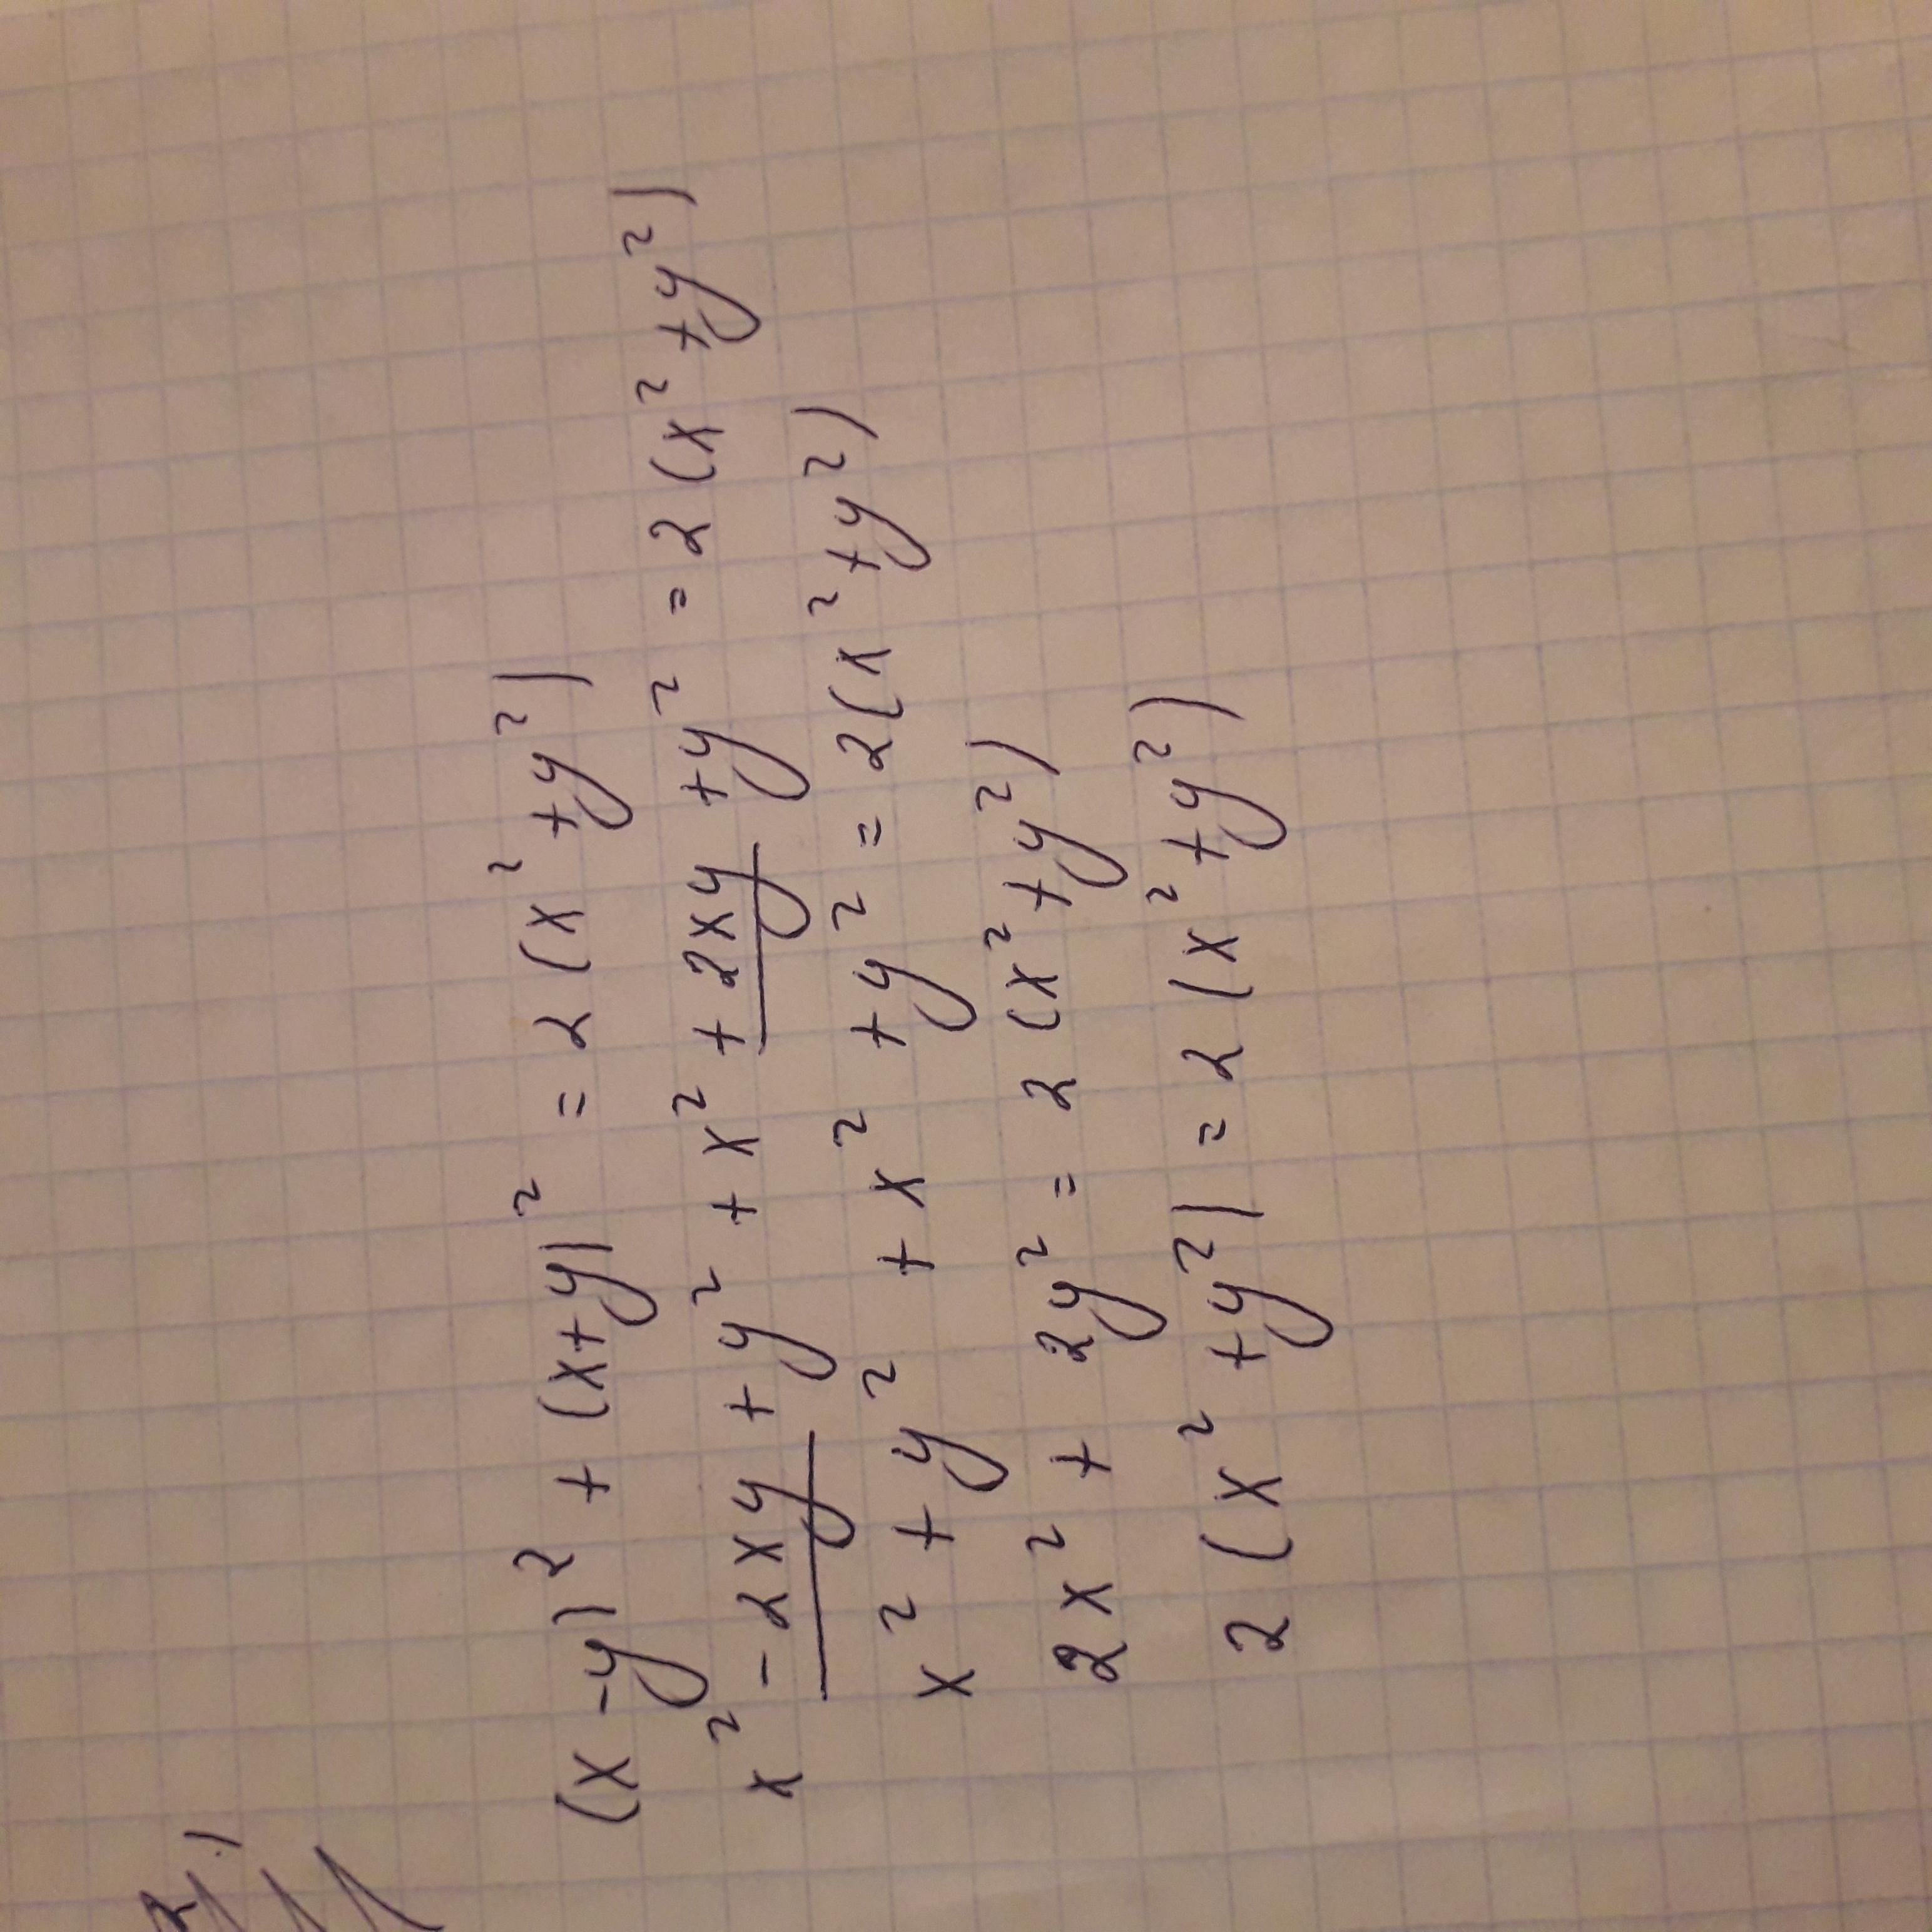 (x-y)² + (x+y)² = 2(x²+y²)
x² - 2xy + y² + x² + 2xy + y² = 2(x²+y²)
x² + y² + x² + y² = 2(x²+y²)
2x² + 2y² = 2(x²+y²)
2(x²+y²) = 2(x²+y²)